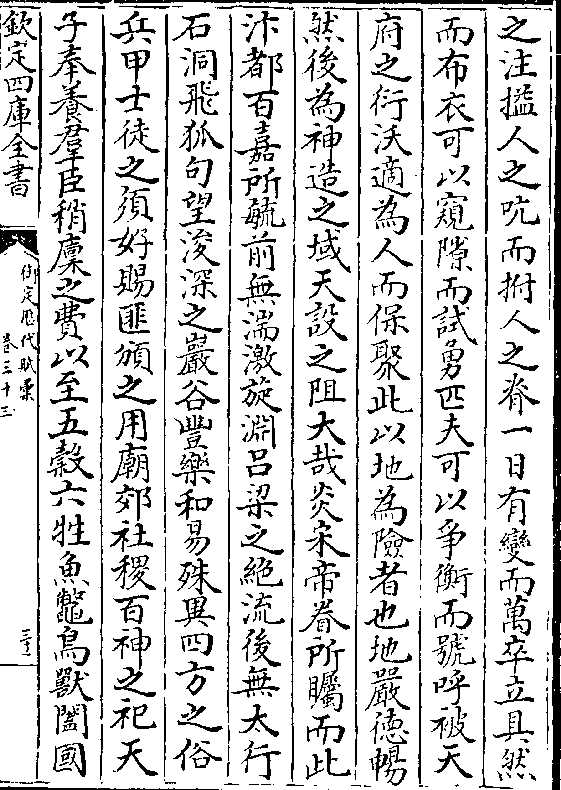 之注搤人之吭而拊人之脊一日有變而萬卒立具然
而布衣可以窺隙而試勇匹夫可以爭衡而號呼被天
府之衍沃適為人而保聚此以地為險者也地嚴德暢
然後為神造之域天設之阻大哉炎宋帝眷所矚而此
汴都百嘉所毓前無湍激旋淵呂梁之絶流後無太行
石洞飛狐句望浚深之巖谷豐樂和易殊異四方之俗
兵甲士徒之須好賜匪頒之用廟郊社稷百神之祀天
子奉養羣臣稍廩之費以至五穀六牲魚鼈鳥獸闔國
欽定四庫全書
御定歴代賦彙
卷三十三